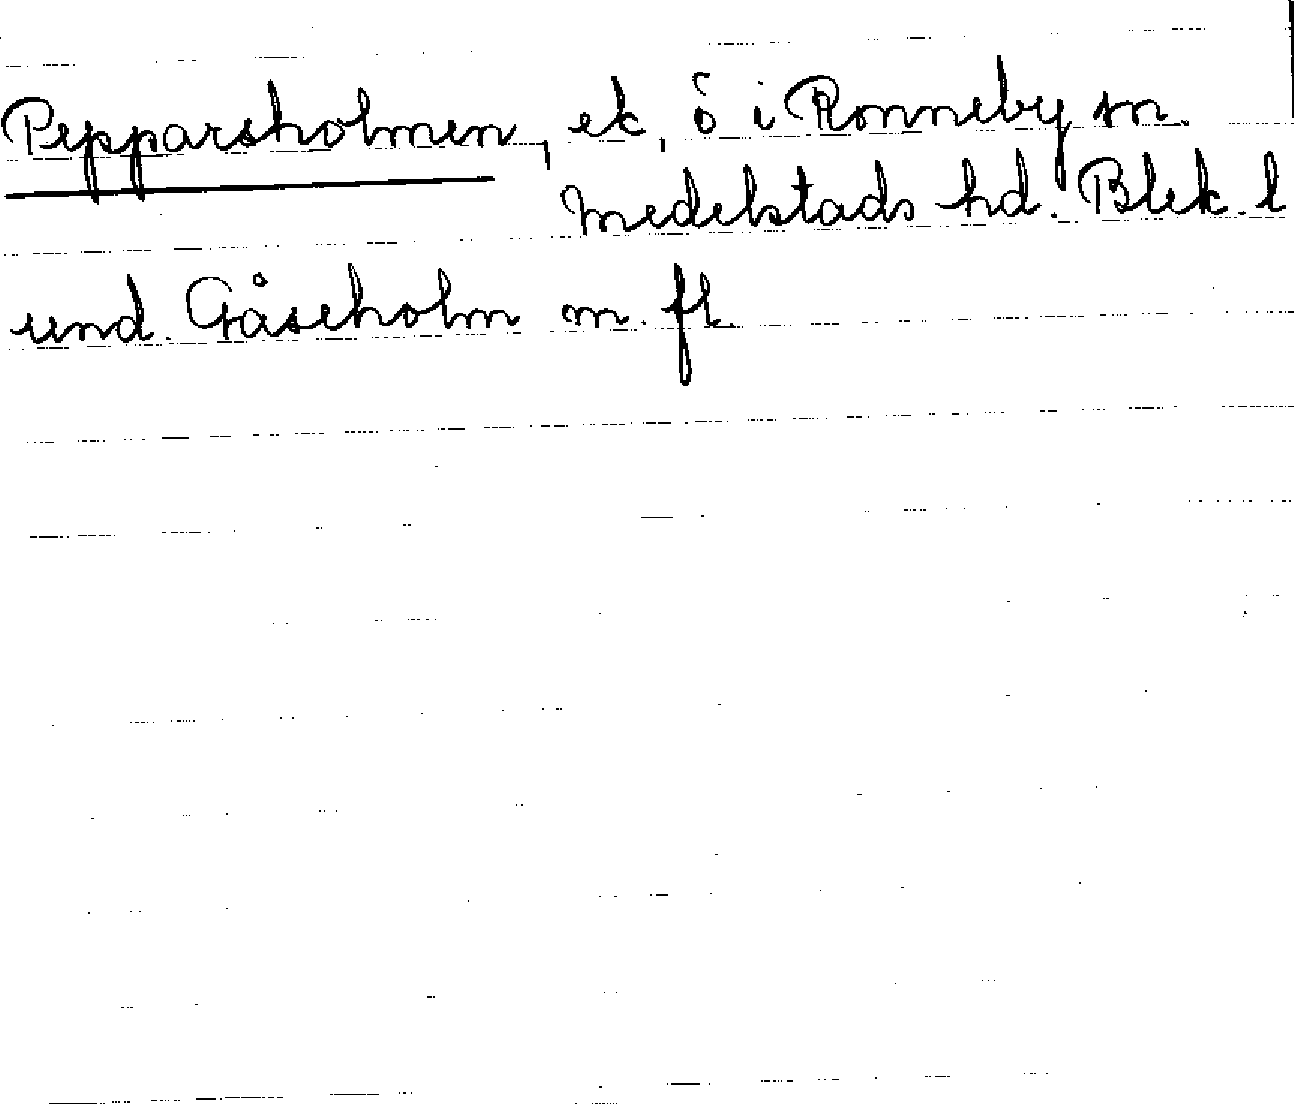 Pepparsholmen, ek, ö i Ronneby sn.
Medelstads hd. Blek. l
und. Gåseholm m. fl.